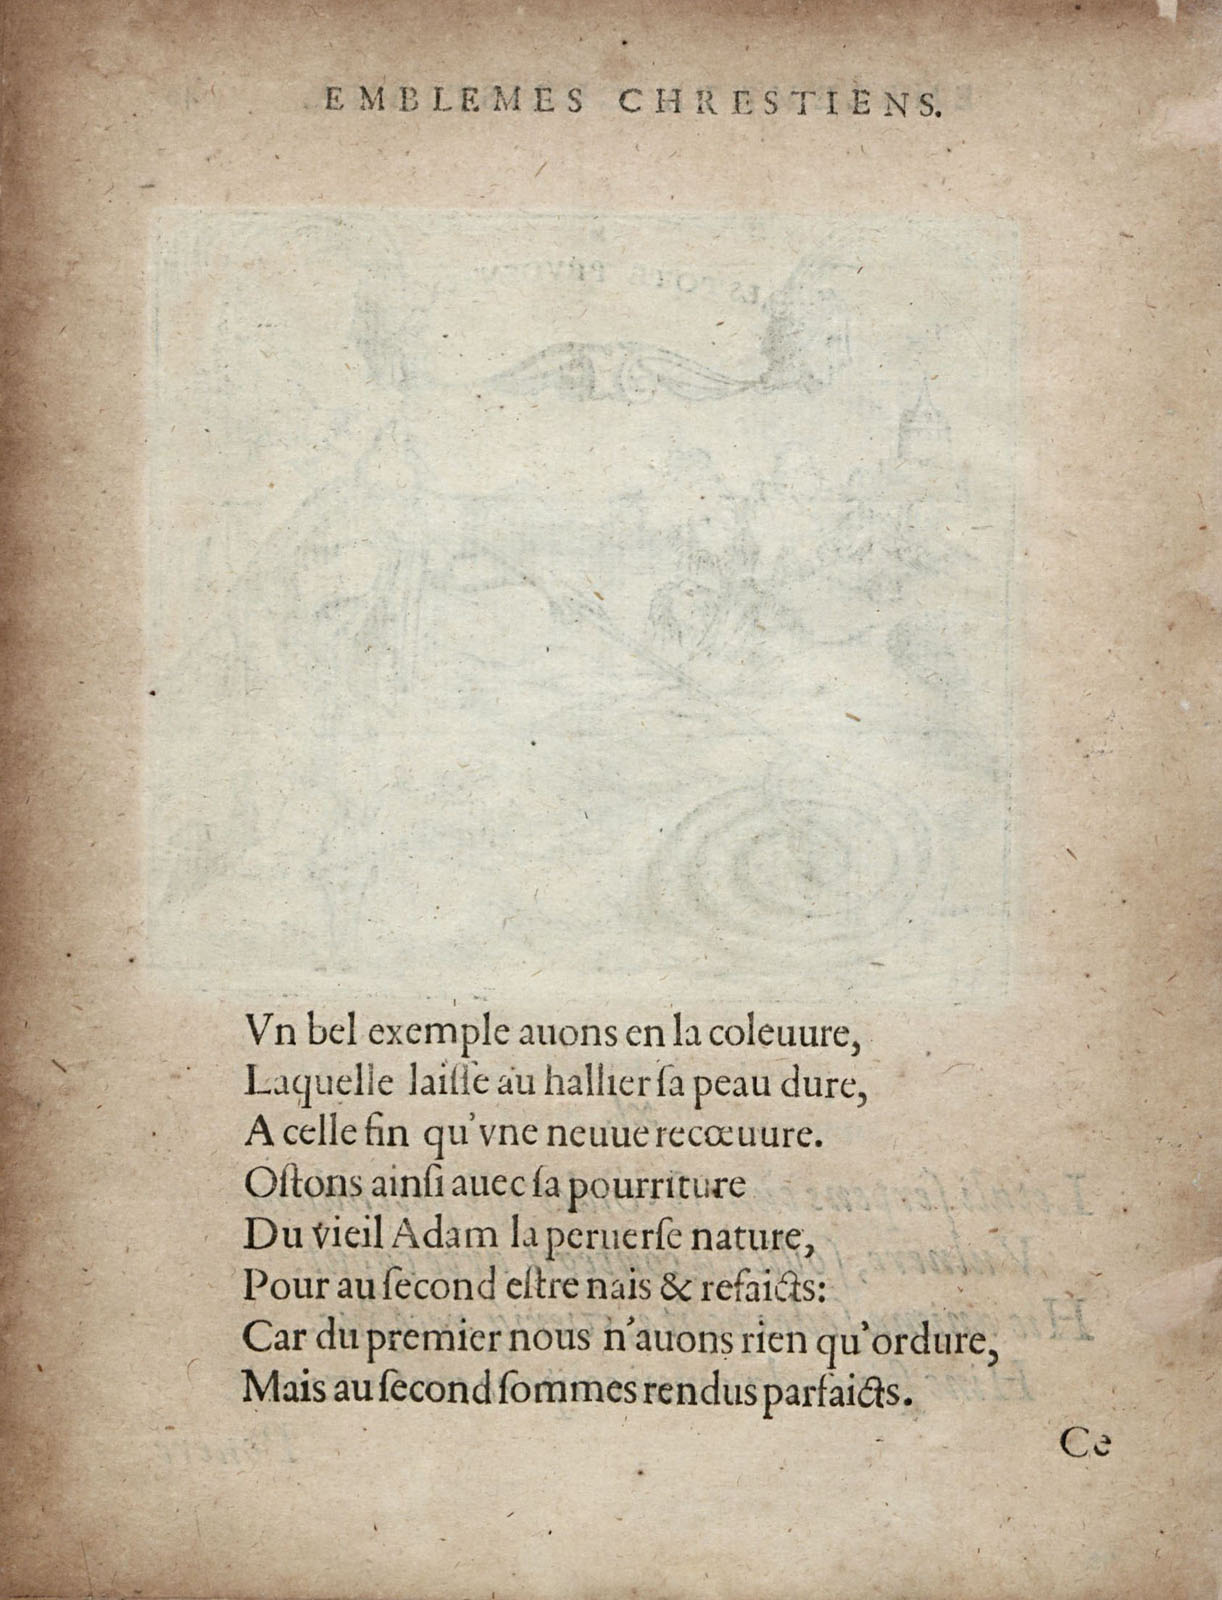 EMBLEMES CHRESTIENS.
Vn bel exemple auons en la coleuure,
Laquelle laiſſe au hallier ſa peau dure,
A celle fin qu'vne neuue recœuure.
Oſtons ainſi auec ſa pourriture
Du vieil Adam la peruerſe nature,
Pour au ſecond eſtre nais & refaicts:
Car du premier nous n'auons rien qu'ordure,
Mais au ſecond ſommes rendus parfaicts.
Ce